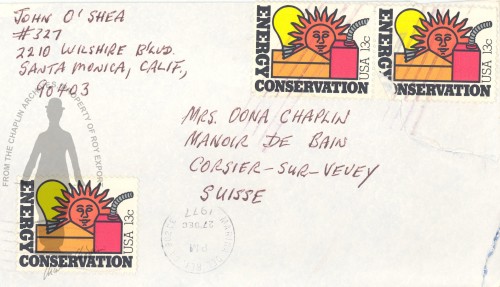 JOHN O'SHEA
#327
2210 WILSHIRE BLVD.
SANTA MONICA, CALIF.,
90403
ENERGY
CONSERVATION
USA 13c
ENERGY
CONSERVATION
USA 13c
MRS. OONA CHAPLIN
MANOIR DE BAIN
CORSIER-SUR-VEVEY
SUISSE
FROM THE CHAPLIN ARCHIVES PROPERTY OF ROY EXPORT
ENERGY
CONSERVATION
USA 13c
PM
27 DEC
1977